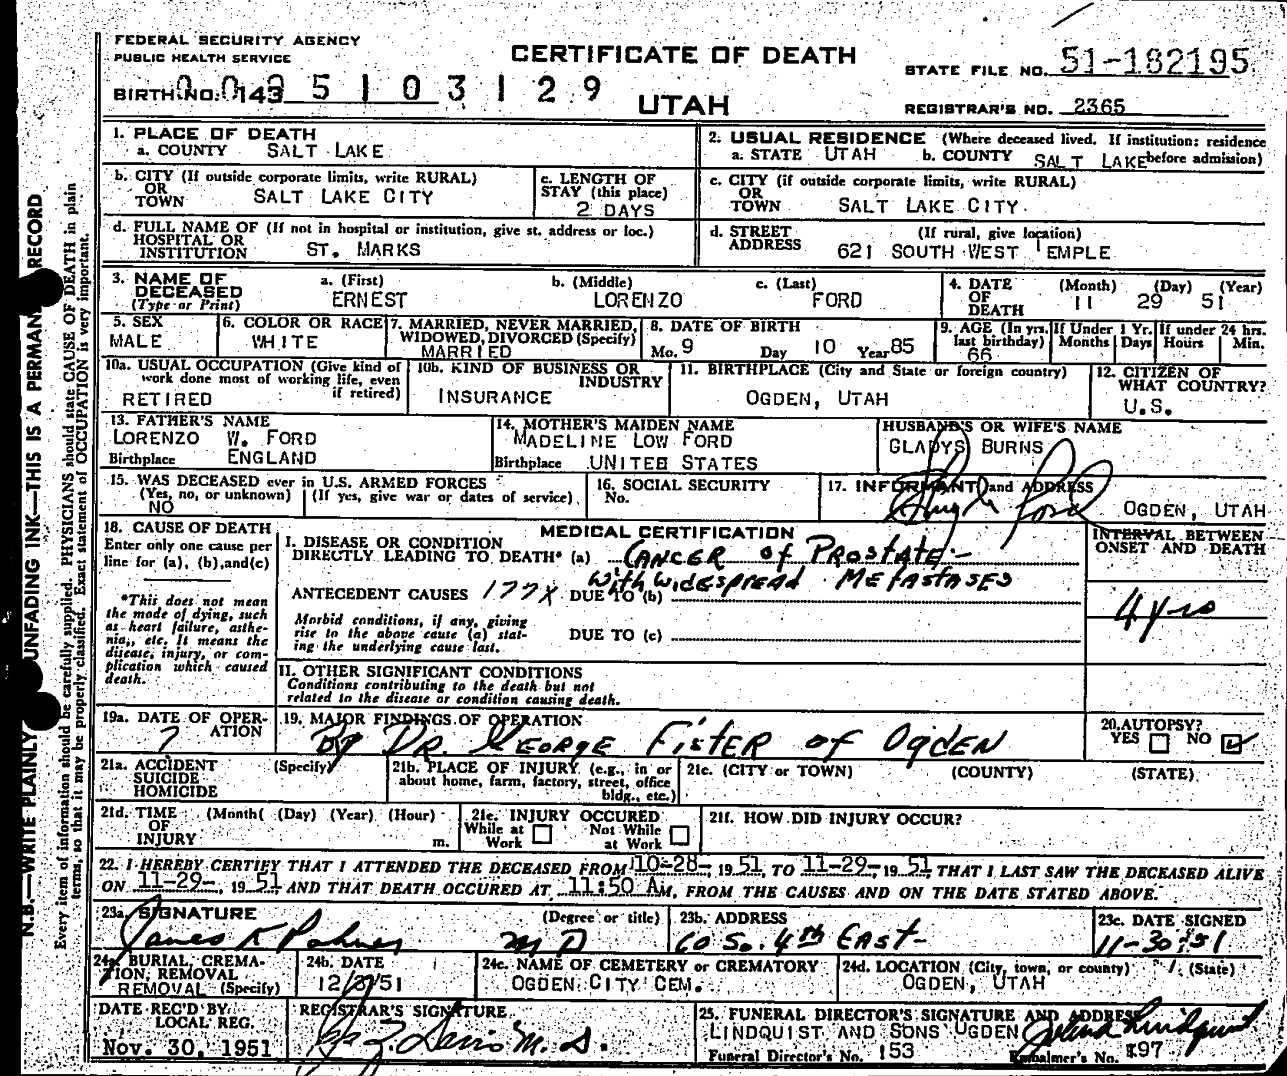 FEDERAL SECURITY AGENCY
PUBLIC HEALTH SERVICE
CERTIFICATE OF DEATH
STATE FILE NO. 51-182195
BIRTH NO. 143
UTAH
REGISTRAR'S NO. 2365
1. PLACE OF DEATH
a. COUNTY SALT LAKE
2. USUAL RESIDENCE (Where deceased lived. If institution: residence before admission)
a. STATE UTAH b. COUNTY SALT LAKE
b. CITY (If outside corporate limits, write RURAL)
OR
TOWN SALT LAKE CITY
c. LENGTH OF
STAY (this place)
2 DAYS
c. CITY (if outside corporate limits, write RURAL)
OR
TOWN SALT LAKE CITY.
d. FULL NAME OF (If not in hospital or institution, give st. address or loc.)
HOSPITAL OR
INSTITUTION ST. MARKS
d. STREET (If rural, give location)
ADDRESS 621 SOUTH WEST TEMPLE
3. NAME OF
DECEASED
(Type or Print)
a. (First) b. (Middle) c. (Last)
ERNEST LORENZO FORD
4. DATE
OF
DEATH
(Month) (Day) (Year)
11 29 51
5. SEX
MALE
6. COLOR OR RACE
WHITE
7. MARRIED, NEVER MARRIED,
WIDOWED, DIVORCED (Specify)
MARRIED
8. DATE OF BIRTH
Mo. 9 Day 10 Year 85
9. AGE (In yrs. last birthday)
66
If Under 1 Yr.
Months Days
If under 24 hrs.
Hours Min.
10a. USUAL OCCUPATION (Give kind of
work done most of working life, even
if retired)
RETIRED
10b. KIND OF BUSINESS OR
INDUSTRY
INSURANCE
11. BIRTHPLACE (City and State or foreign country)
OGDEN, UTAH
12. CITIZEN OF
WHAT COUNTRY?
U.S.
13. FATHER'S NAME
LORENZO W. FORD
Birthplace ENGLAND
14. MOTHER'S MAIDEN NAME
MADELINE LOW FORD
Birthplace UNITED STATES
HUSBAND'S OR WIFE'S NAME
GLADYS BURNS
15. WAS DECEASED ever in U.S. ARMED FORCES
(Yes, no, or unknown) (If yes, give war or dates of service)
NO
16. SOCIAL SECURITY
No.
17. INFORMANT and ADDRESS
Ford OGDEN, UTAH
18. CAUSE OF DEATH
Enter only one cause per
line for (a), (b), and (c)
*This does not mean
the mode of dying, such
as heart failure, asthe-
nia,, etc. It means the
disease, injury, or com-
plication which caused
death.
MEDICAL CERTIFICATION
I. DISEASE OR CONDITION
DIRECTLY LEADING TO DEATH* (a) CANCER of PROSTATE-
With WIDESPREAD METASTASES
ANTECEDENT CAUSES 177X DUE TO (b)
Morbid conditions, if any, giving
rise to the above cause (a) stat-
ing the underlying cause last.
DUE TO (c)
II. OTHER SIGNIFICANT CONDITIONS
Conditions contributing to the death but not
related to the disease or condition causing death.
INTERVAL BETWEEN
ONSET AND DEATH
4 yrs
19a. DATE OF OPER-
ATION
?
19. MAJOR FINDINGS OF OPERATION
By DR. GEORGE FISTER of OGDEN
20. AUTOPSY?
YES NO
21a. ACCIDENT
SUICIDE
HOMICIDE
(Specify)
21b. PLACE OF INJURY (e.g., in or
about home, farm, factory, street, office
bldg., etc.)
21c. (CITY or TOWN) (COUNTY) (STATE)
21d. TIME
OF
INJURY
(Month( (Day) (Year) (Hour)
m.
21e. INJURY OCCURED
While at Work Not While at Work
21f. HOW DID INJURY OCCUR?
22. I HEREBY CERTIFY THAT I ATTENDED THE DECEASED FROM 10-28-, 19 51, TO 11-29-, 19 51 THAT I LAST SAW THE DECEASED ALIVE
ON 11-29-, 19 51 AND THAT DEATH OCCURED AT 11:50 AM, FROM THE CAUSES AND ON THE DATE STATED ABOVE.
23a. SIGNATURE (Degree or title)
James K Palmer M D
23b. ADDRESS
60 So. 4th EAST-
23c. DATE SIGNED
11-30-51
24a. BURIAL, CREMA-
TION, REMOVAL
REMOVAL (Specify)
24b. DATE
12/3/51
24c. NAME OF CEMETERY or CREMATORY
OGDEN CITY CEM.
24d. LOCATION (City, town, or county) (State)
OGDEN, UTAH
DATE REC'D BY
LOCAL REG.
Nov. 30, 1951
REGISTRAR'S SIGNATURE
M. D.
25. FUNERAL DIRECTOR'S SIGNATURE AND ADDRESS
LINDQUIST AND SONS OGDEN Lindquist
Funeral Director's No. 153 Embalmer's No. 197
N.B.—WRITE PLAINLY UNFADING INK—THIS IS A PERMAN RECORD
Every item of information should be carefully supplied. PHYSICIANS should state CAUSE OF DEATH in plain
terms, so that it may be properly classified. Exact statement of OCCUPATION is very important.